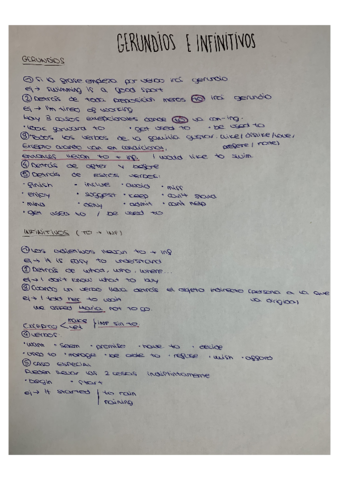 GERUNDIOS E INFINITIVOS
GERUNDIOS
① Si la frase empieza por verbo irá gerundio
ej → swimming is a good sport
② Detrás de toda preposición menos TO irá gerundio
ej → I'm tired of working
Hay 3 casos excepciones donde TO va con -ing
· look forward to · get used to · be used to
③ Todos los verbos de la familia gustar (like/dislike/love/
prefere / hate)
Excepto cuando van en condicional.
entonces llevan to + inf. I would like to swim
④ Detrás de after y before
⑤ Detrás de estos verbos:
· finish · include · avoid · miss
· enjoy · suggest · keep · can't stand
· mind · deny · admit · can't help
· get used to / be used to
INFINITIVOS (TO + INF)
① Los adjetivos llevan to + inf
ej → It is easy to understand
② Detrás de what, who, where...
ej → I don't know what to buy
③ Cuando un verbo lleva detrás el objeto
ej → I told her to wait
We asked María not to go
EXCEPTO make
let
INF sin to
④ verbos
· want · seem · promise · have to · decide
· used to · manage · be able to · refuse · wish · afford
⑤ caso especial
pueden llevar los 2 casos indistintamente
· begin · start
ej → It started to rain
raining